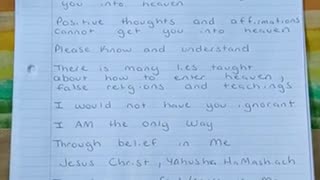 you into heaven
Positive thoughts and affirmations
cannot get you into heaven
Please Know and understand
There is many lies taught
about how to enter heaven,
false religions and teachings
I would not have you ignorant
I AM the only way
Through belief in Me
Jesus Christ, YAhusha HaMashiach